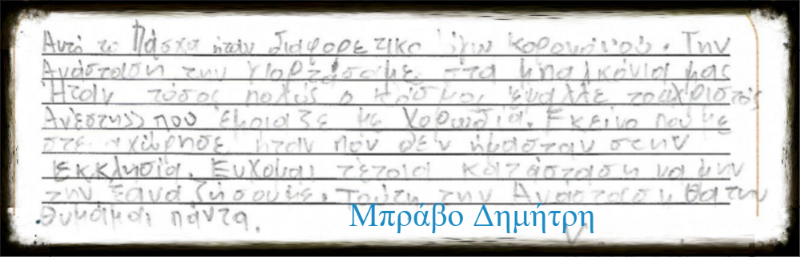 Αυτό το Πάσχα ήταν διαφορετικό λόγω κορονοϊού. Την
Ανάσταση την γιορτάσαμε στα μπαλκόνια μας
Ήταν τόσος πολύς ο κόσμος έψαλλε το Χριστός
Ανέστη>> που έμοιαζε με χορωδία. Εκείνο που με
στεναχώρησε ήταν που δεν ήμασταν στην
εκκλησία. Εύχομαι τέτοια κατάσταση να μην
την ξαναζήσουμε. Τούτη την Ανάσταση θα την
θυμάμαι πάντα.
Μπράβο Δημήτρη